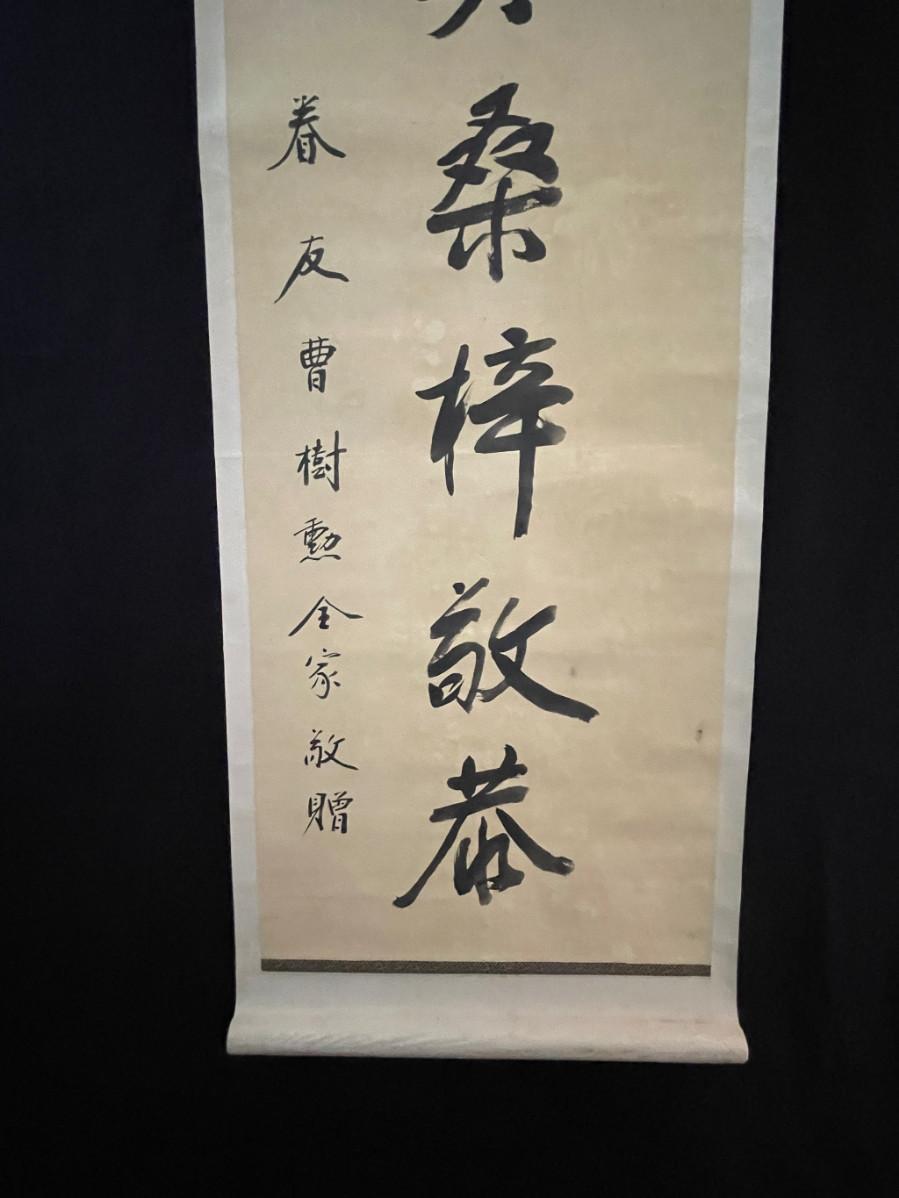 桑梓敬恭
眷友曹樹勳全家敬贈